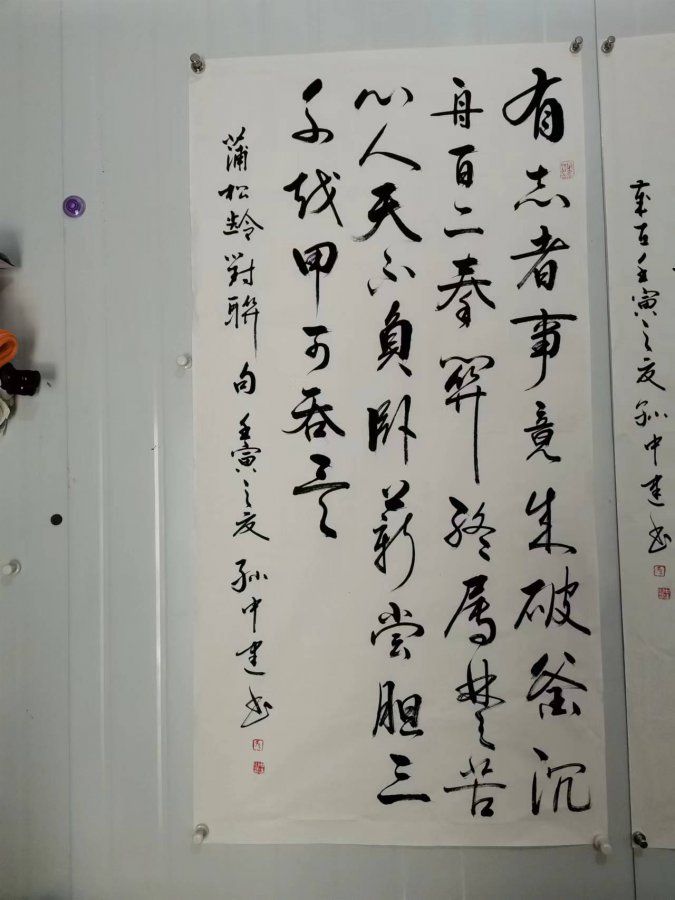 有志者事竟成破釜沉
舟百二秦關終属楚苦
心人天不負卧薪尝胆三
千越甲可吞吴
蒲松齡對聯句 壬寅之夏 孫中建书
壬寅之夏孫中建书